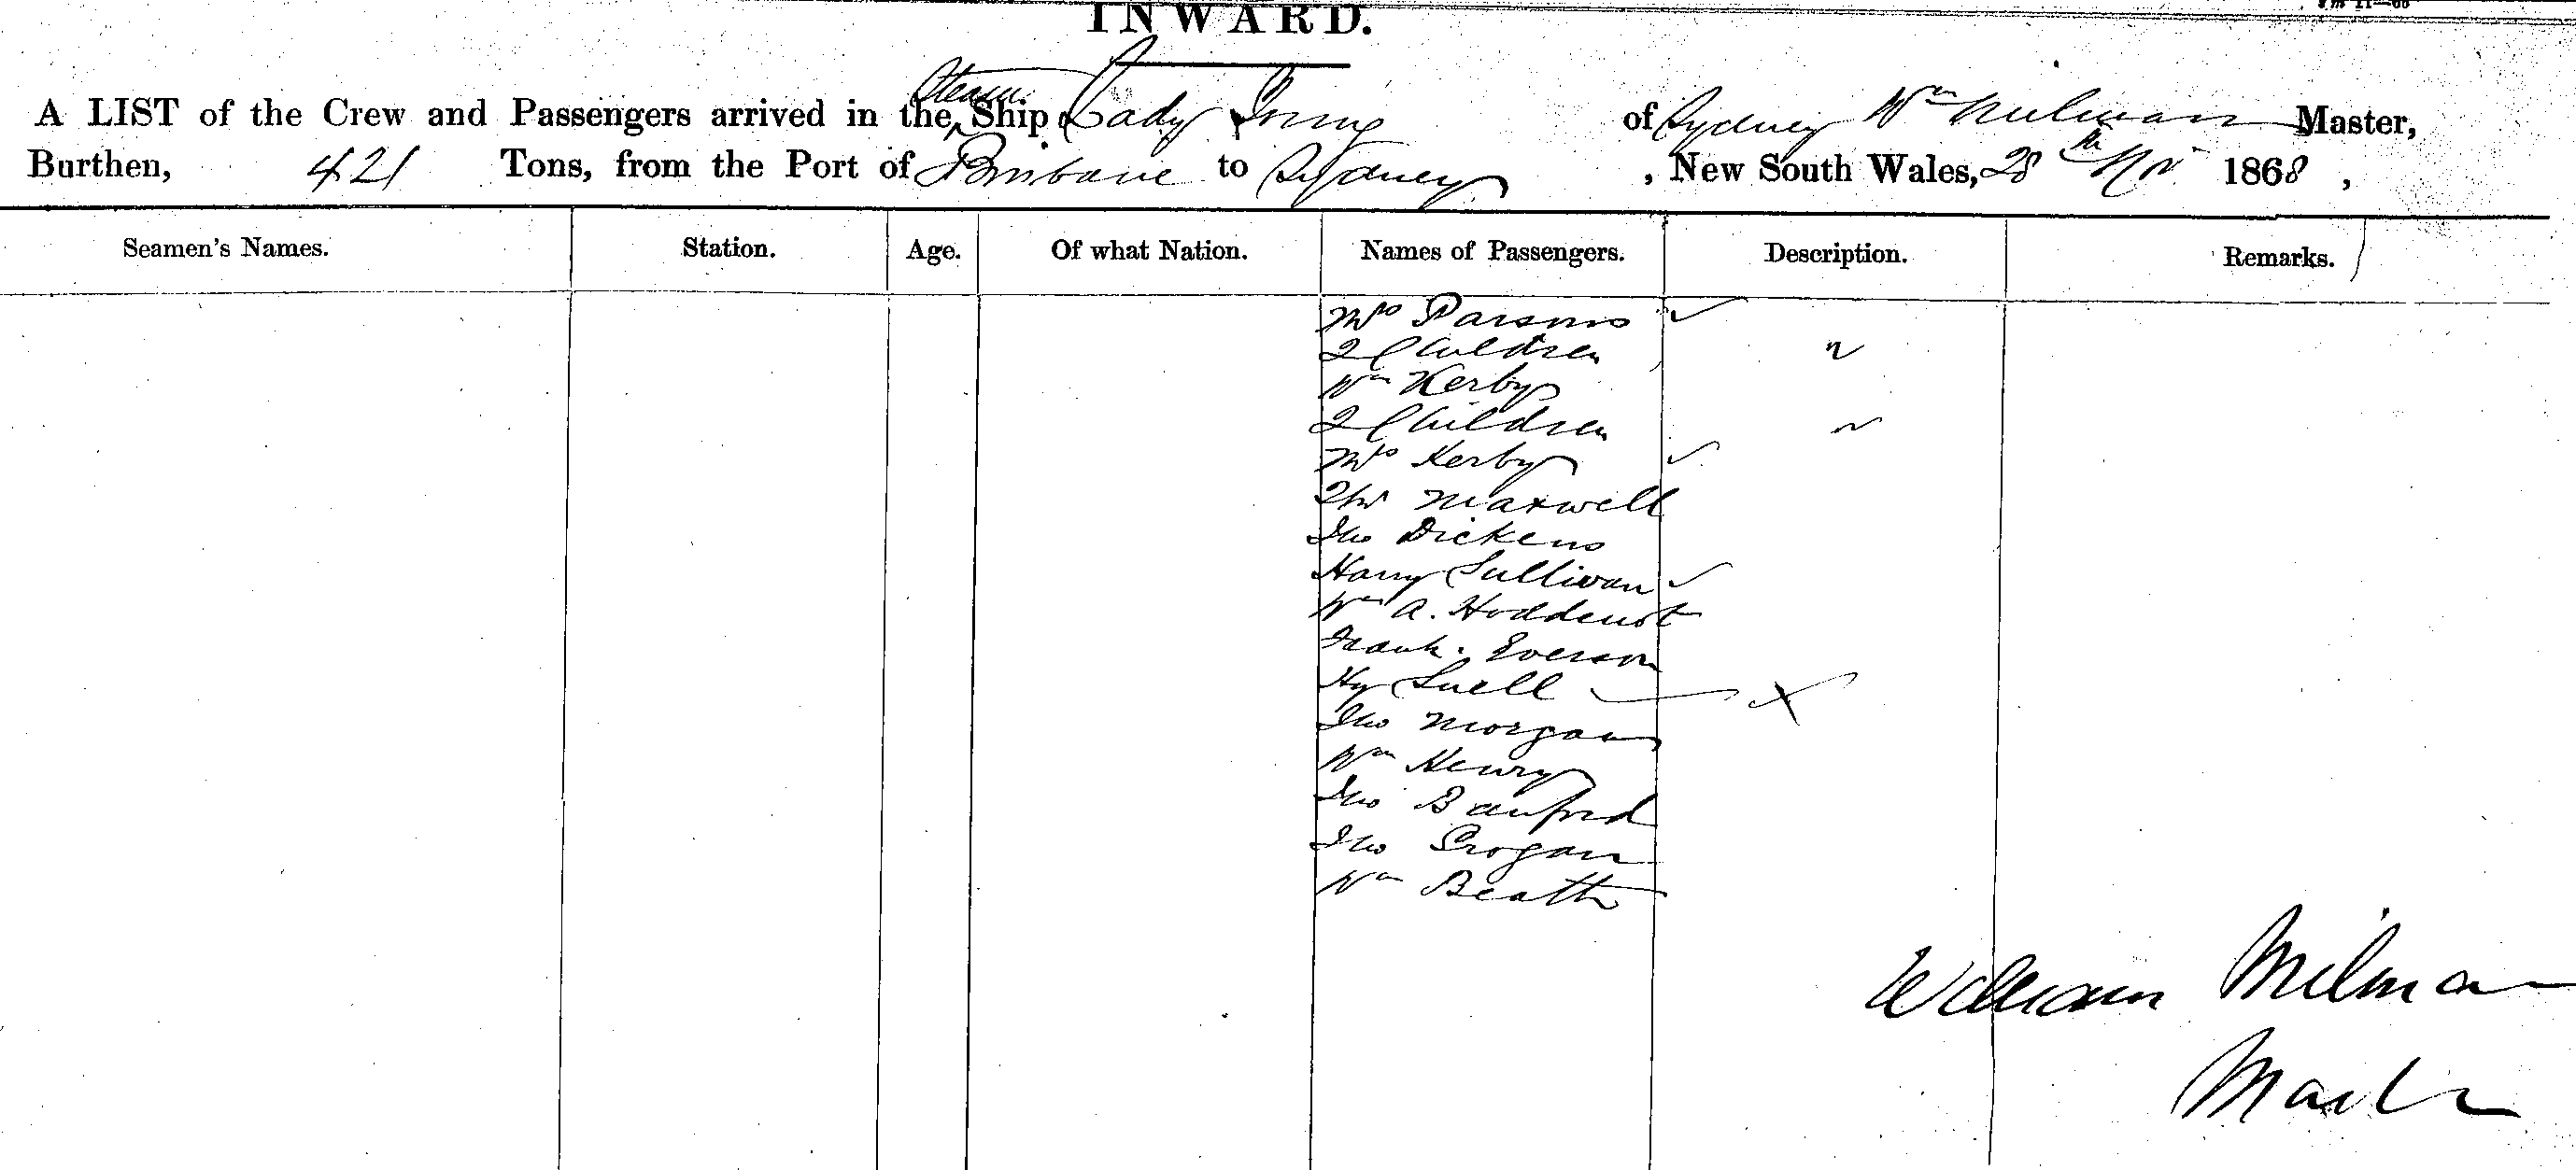 INWARD.
A LIST of the Crew and Passengers arrived in the Steam Ship Lady Young of Sydney Wm Milman Master,
Burthen, 421 Tons, from the Port of Brisbane to Sydney, New South Wales, 28th Nov 1868,
Seamen's Names. Station. Age. Of what Nation. Names of Passengers. Description. Remarks.
Mrs Parsons
2 Children
Wm Kerby
2 Children
Mrs Kerby
Maxwell
Jno Dickens
Harry Sullivan
Wm A.
Frank. Everson
Hy Snell X
Jno Morgan
Wm Henry
Jno Banford
Jno Grogan
Wm Beatt
William Milman
Master